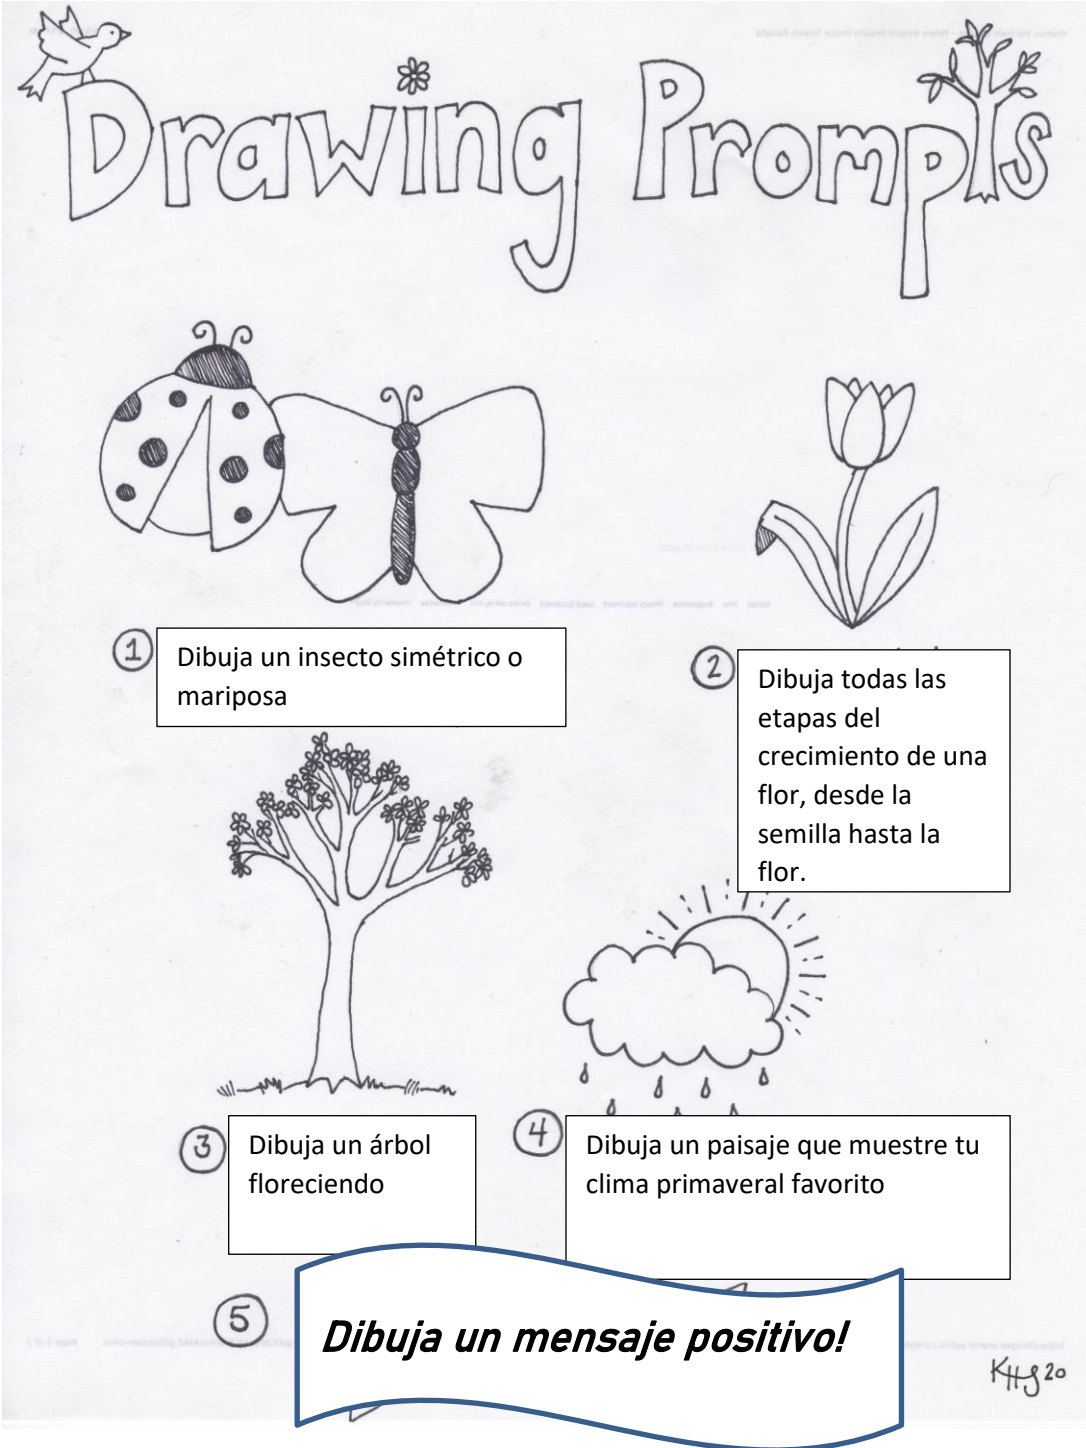 Drawing Prompts
1
Dibuja un insecto simétrico o
mariposa
2
Dibuja todas las
etapas del
crecimiento de una
flor, desde la
semilla hasta la
flor.
3
Dibuja un árbol
floreciendo
4
Dibuja un paisaje que muestre tu
clima primaveral favorito
5
Dibuja un mensaje positivo!
KHS 20